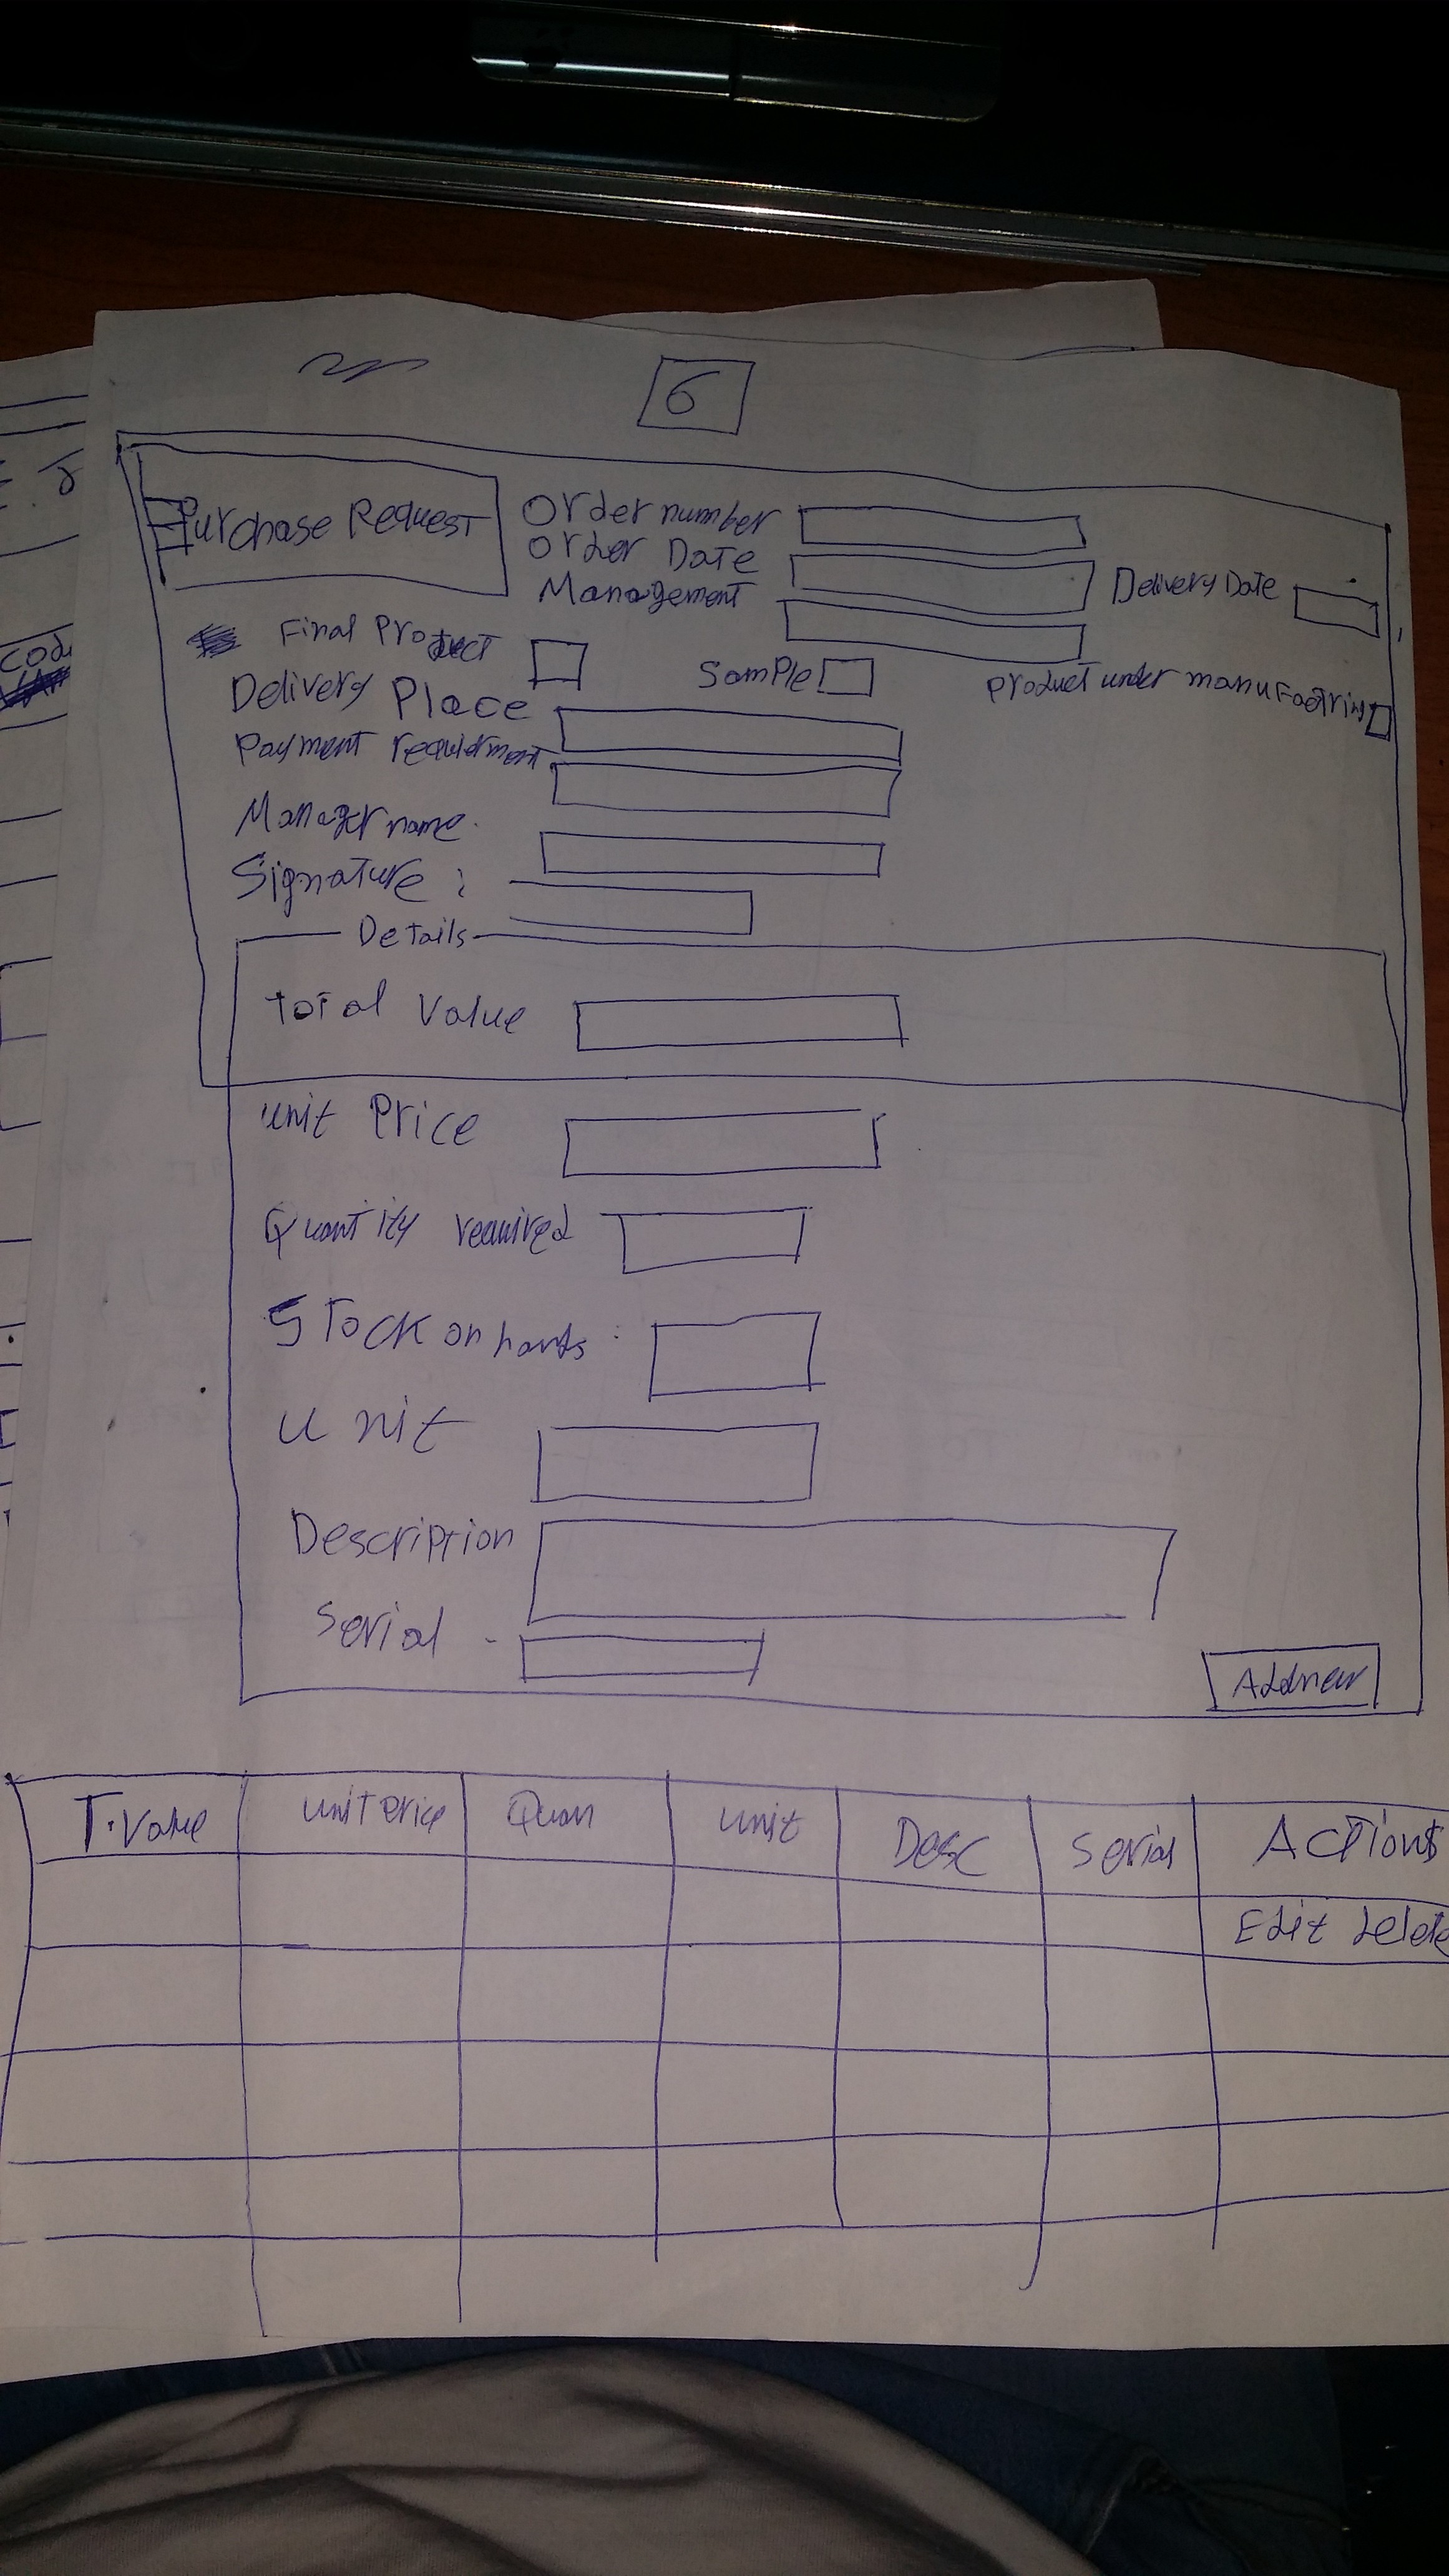 6
Purchase Request
Order number
Order Date
Management
Delivery Date
Final Product
Sample
Product under manufactring
Delivery Place
Payment requirment
Manager name.
Signature :
Details
total Value
unit Price
Quantity required
Stock on hands :
unit
Description
Serial -
Addnew
T.Value unit Price Quan unit Desc Serial Actions
Edit delete